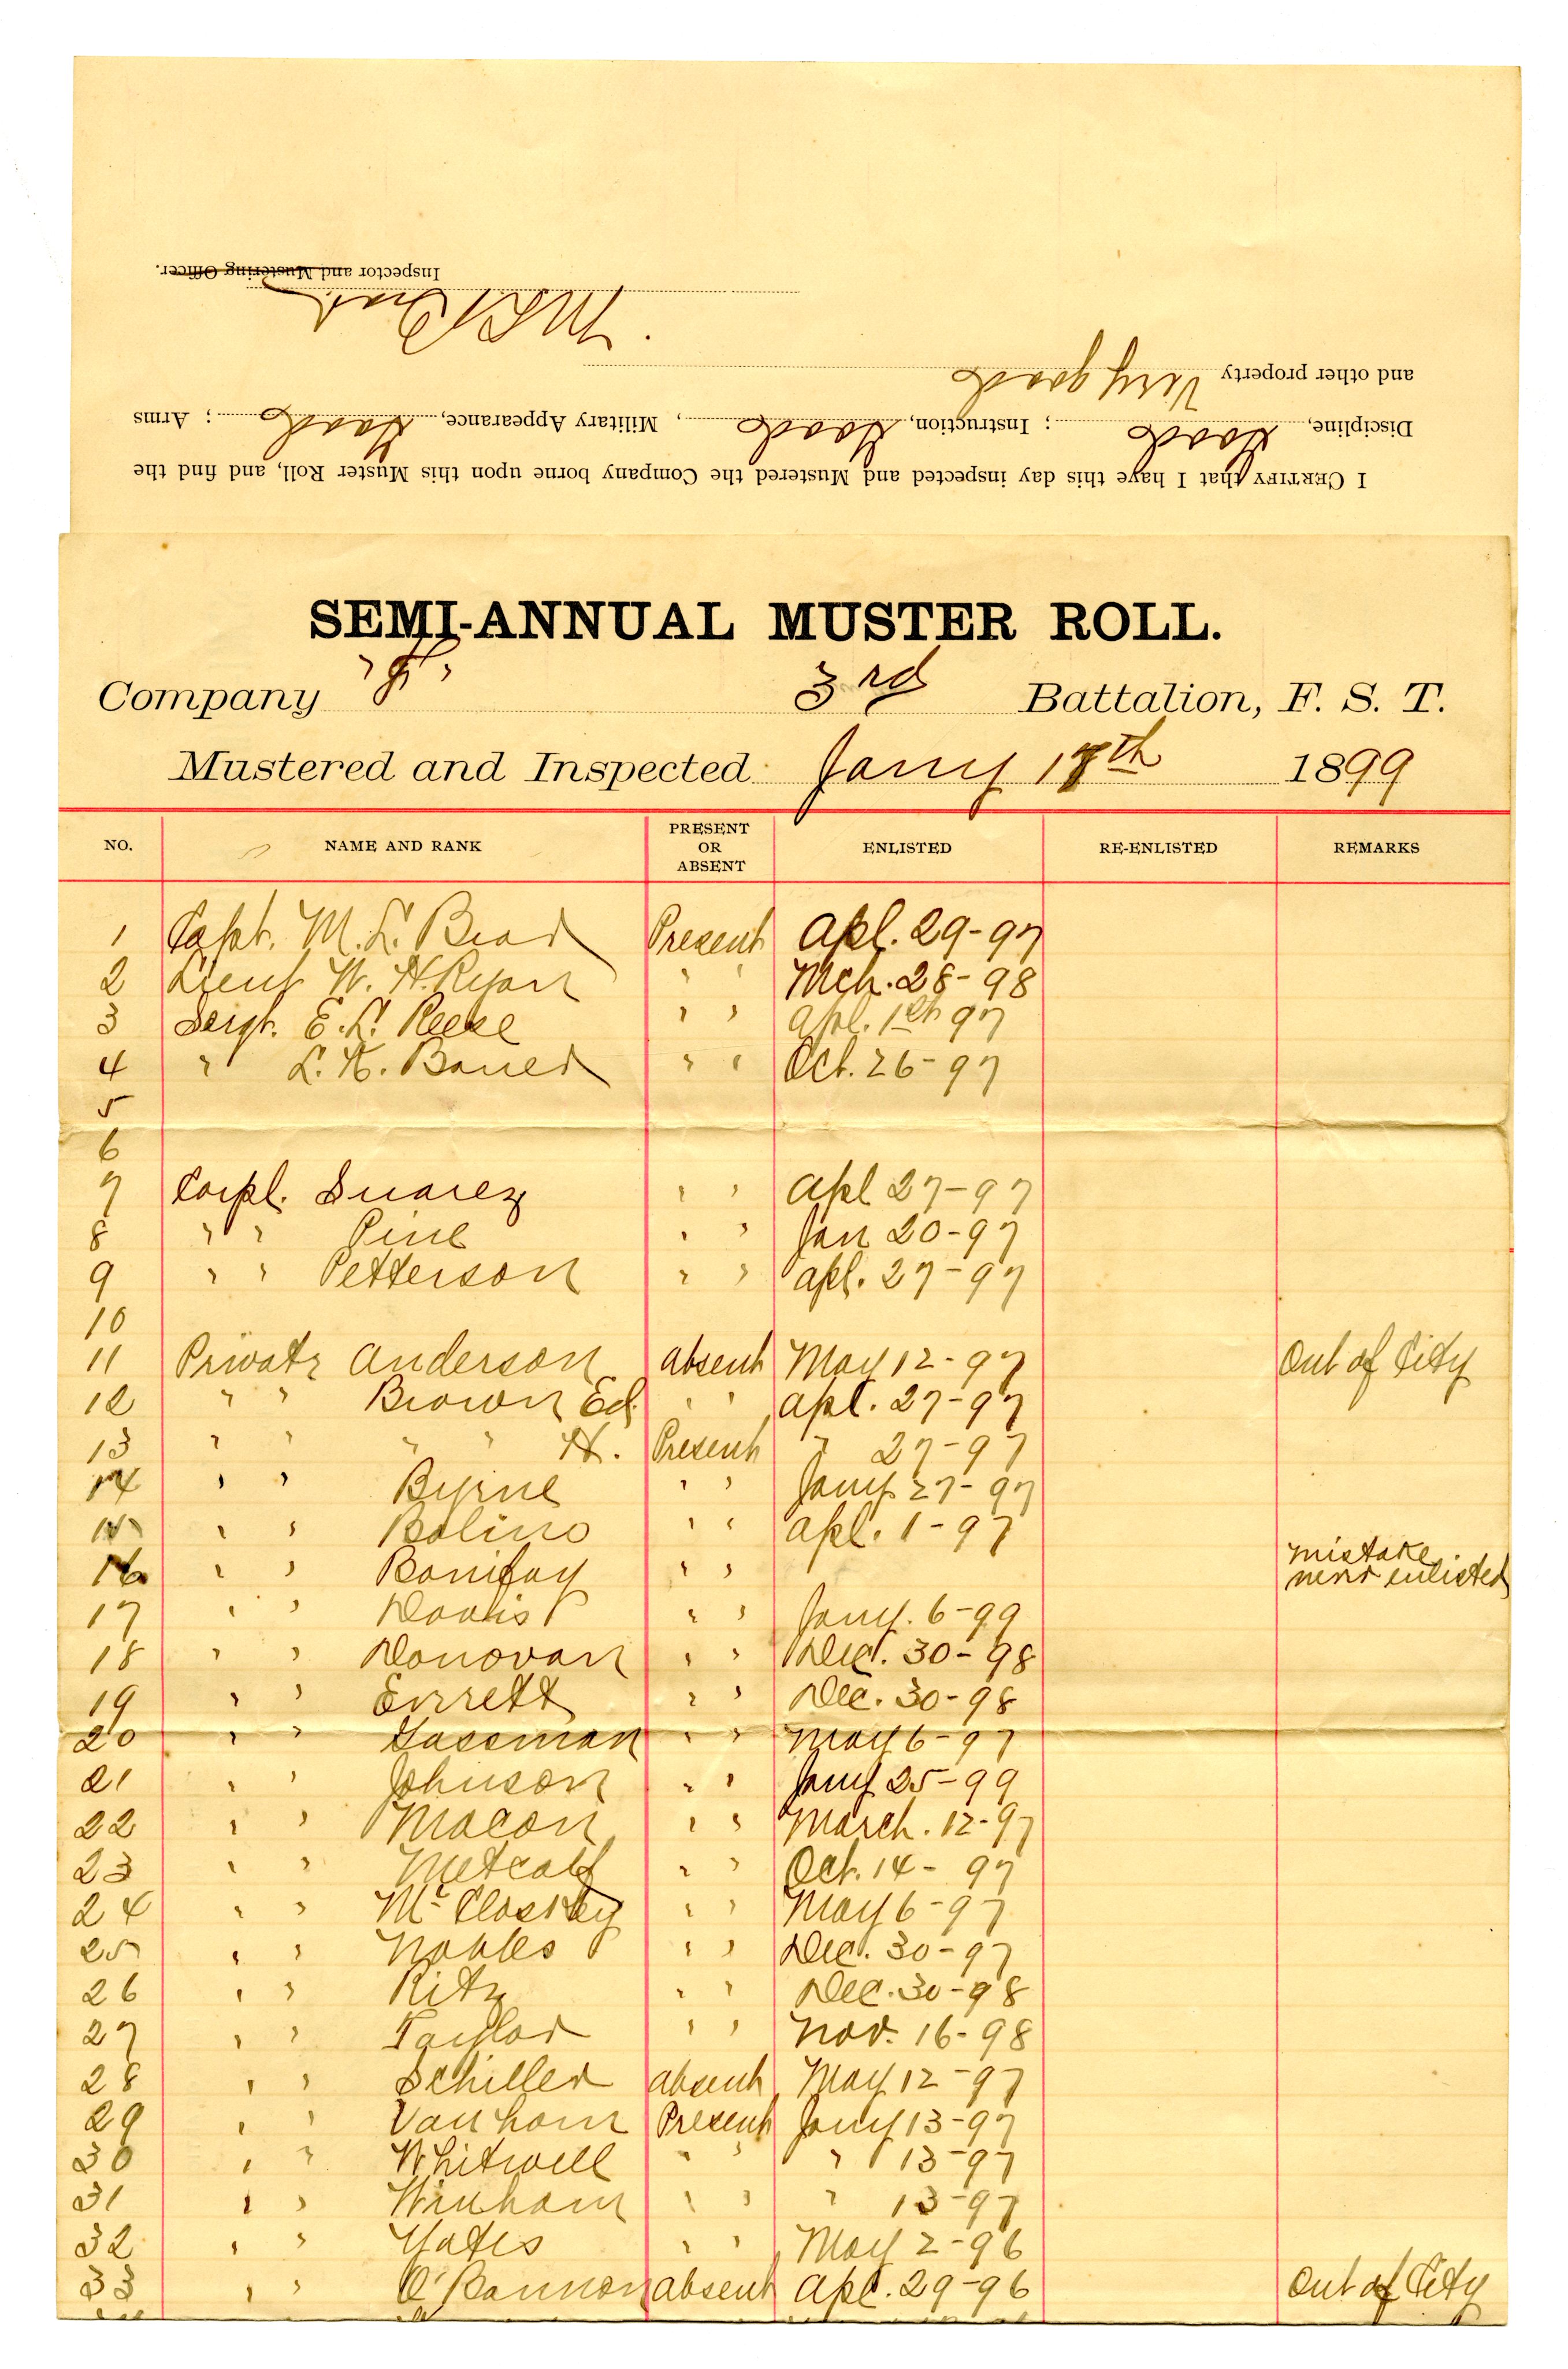 I CERTIFY that I have this day inspected and Mustered the Company borne upon this Muster Roll, and find the
Discipline, Good ; Instruction, Good , Military Appearance, Good ; Arms
and other property Very good
Inspector and Mustering Officer.
SEMI-ANNUAL MUSTER ROLL.
Company 3rd Battalion, F. S. T.
Mustered and Inspected Jany 17th 1899
NO. NAME AND RANK PRESENT OR ABSENT ENLISTED RE-ENLISTED REMARKS
1 Capt. M. L. Brad Present Apl. 29-97
2 Lieut W. H. Ryan " " Mch. 28-98
3 Sergt. E. L. Reese " " Apl. 1st 97
4 " L. H. Bauer " " Oct. 26-97
5
6
7 Corpl. Suarez " " Apl 27-97
8 " " Pine " " Jan 20-97
9 " " Petterson " " Apl. 27-97
10
11 Private Anderson Absent May 12-97 Out of City
12 " " Brown Ed. " " Apl. 27-97
13 " " " " H. Present " 27-97
14 " " Byrne " " Jany 27-97
15 " " Bolino " " Apl. 1-97
16 " " Bonifay " " mistake. never enlisted
17 " " Davis " " Jany. 6-99
18 " " Donovan " " Dec. 30-98
19 " " Everett " " Dec. 30-98
20 " " Gassman " " May 6-97
21 " " Johnson " " Jany 25-99
22 " " Macon " " March. 12-97
23 " " Metcalf " " Oct. 14-97
24 " " McCloskey " " May 6-97
25 " " Nobles " " Dec. 30-97
26 " " Ritz " " Dec. 30-98
27 " " Taylor " " Nov. 16-98
28 " " Schiller Absent May 12-97
29 " " Vanhorn Present Jany 13-97
30 " " Whitwell " " " 13-97
31 " " Windham " " " 13-97
32 " " Yates " " May 2-96
33 " " O'Bannon absent Apl. 29-96 Out of City